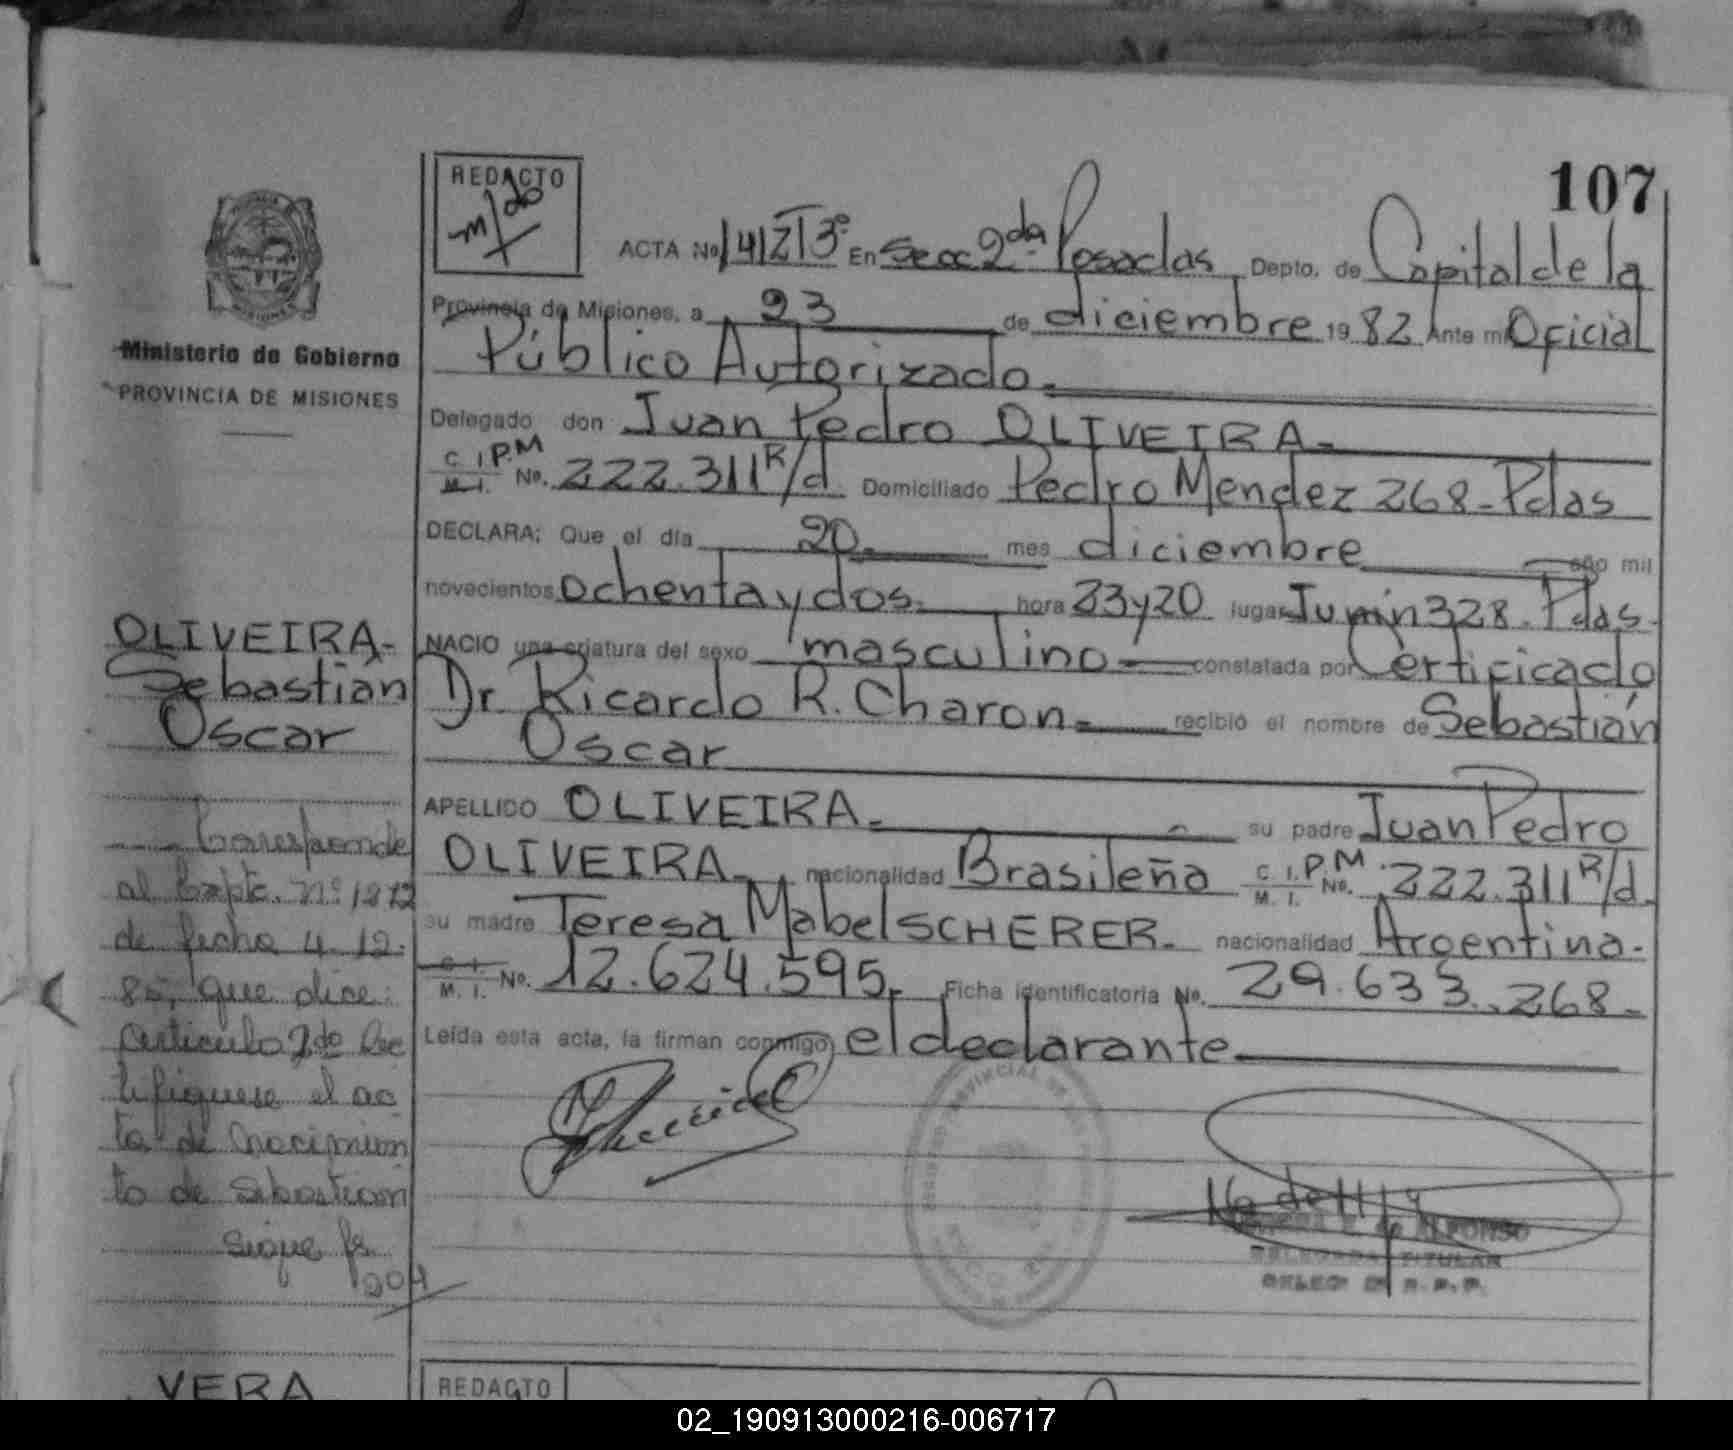 107
REDACTO
ACTA No 141 T 3º En Secc 2da Posadas Depto. de Capital de la
Provincia de Misiones, a 23 de diciembre 19 82 Ante mí Oficial
Público Autorizado.
Ministerio de Gobierno
PROVINCIA DE MISIONES
Delegado don Juan Pedro OLIVEIRA.
C. I. P.M
M. I. No. 222.311 R/d. Domiciliado Pedro Mendez 268 - Pdas
DECLARA: Que el día 20 mes diciembre año mil
novecientos ochenta y dos. hora 23 y 20 lugar Junín 328. Pdas.
NACIO una criatura del sexo masculino constatada por Certificado
Dr Ricardo R. Charon recibió el nombre de Sebastián
Oscar
OLIVEIRA-
Sebastián
Oscar
APELLIDO OLIVEIRA. su padre Juan Pedro
OLIVEIRA nacionalidad Brasileña C. I. P.M
M. I. No. 222.311 R/d.
su madre Teresa Mabel SCHERER. nacionalidad Argentina.
C. I.
M. I. No. 12.624.595. Ficha identificatoria No. 29.633.268.
Leída esta acta, la firman conmigo, el declarante
Corresponde
al Expte. nº 1872
de fecha 4.12.
85, que dice:
Artículo 2do Rec
tifíquese el ac
ta de nacimien
to de Sebastian
Sigue fs
204
ALFONSO
DELEGADA TITULAR
DELEG. R.P.P.
VERA
REDACTO
02_190913000216-006717